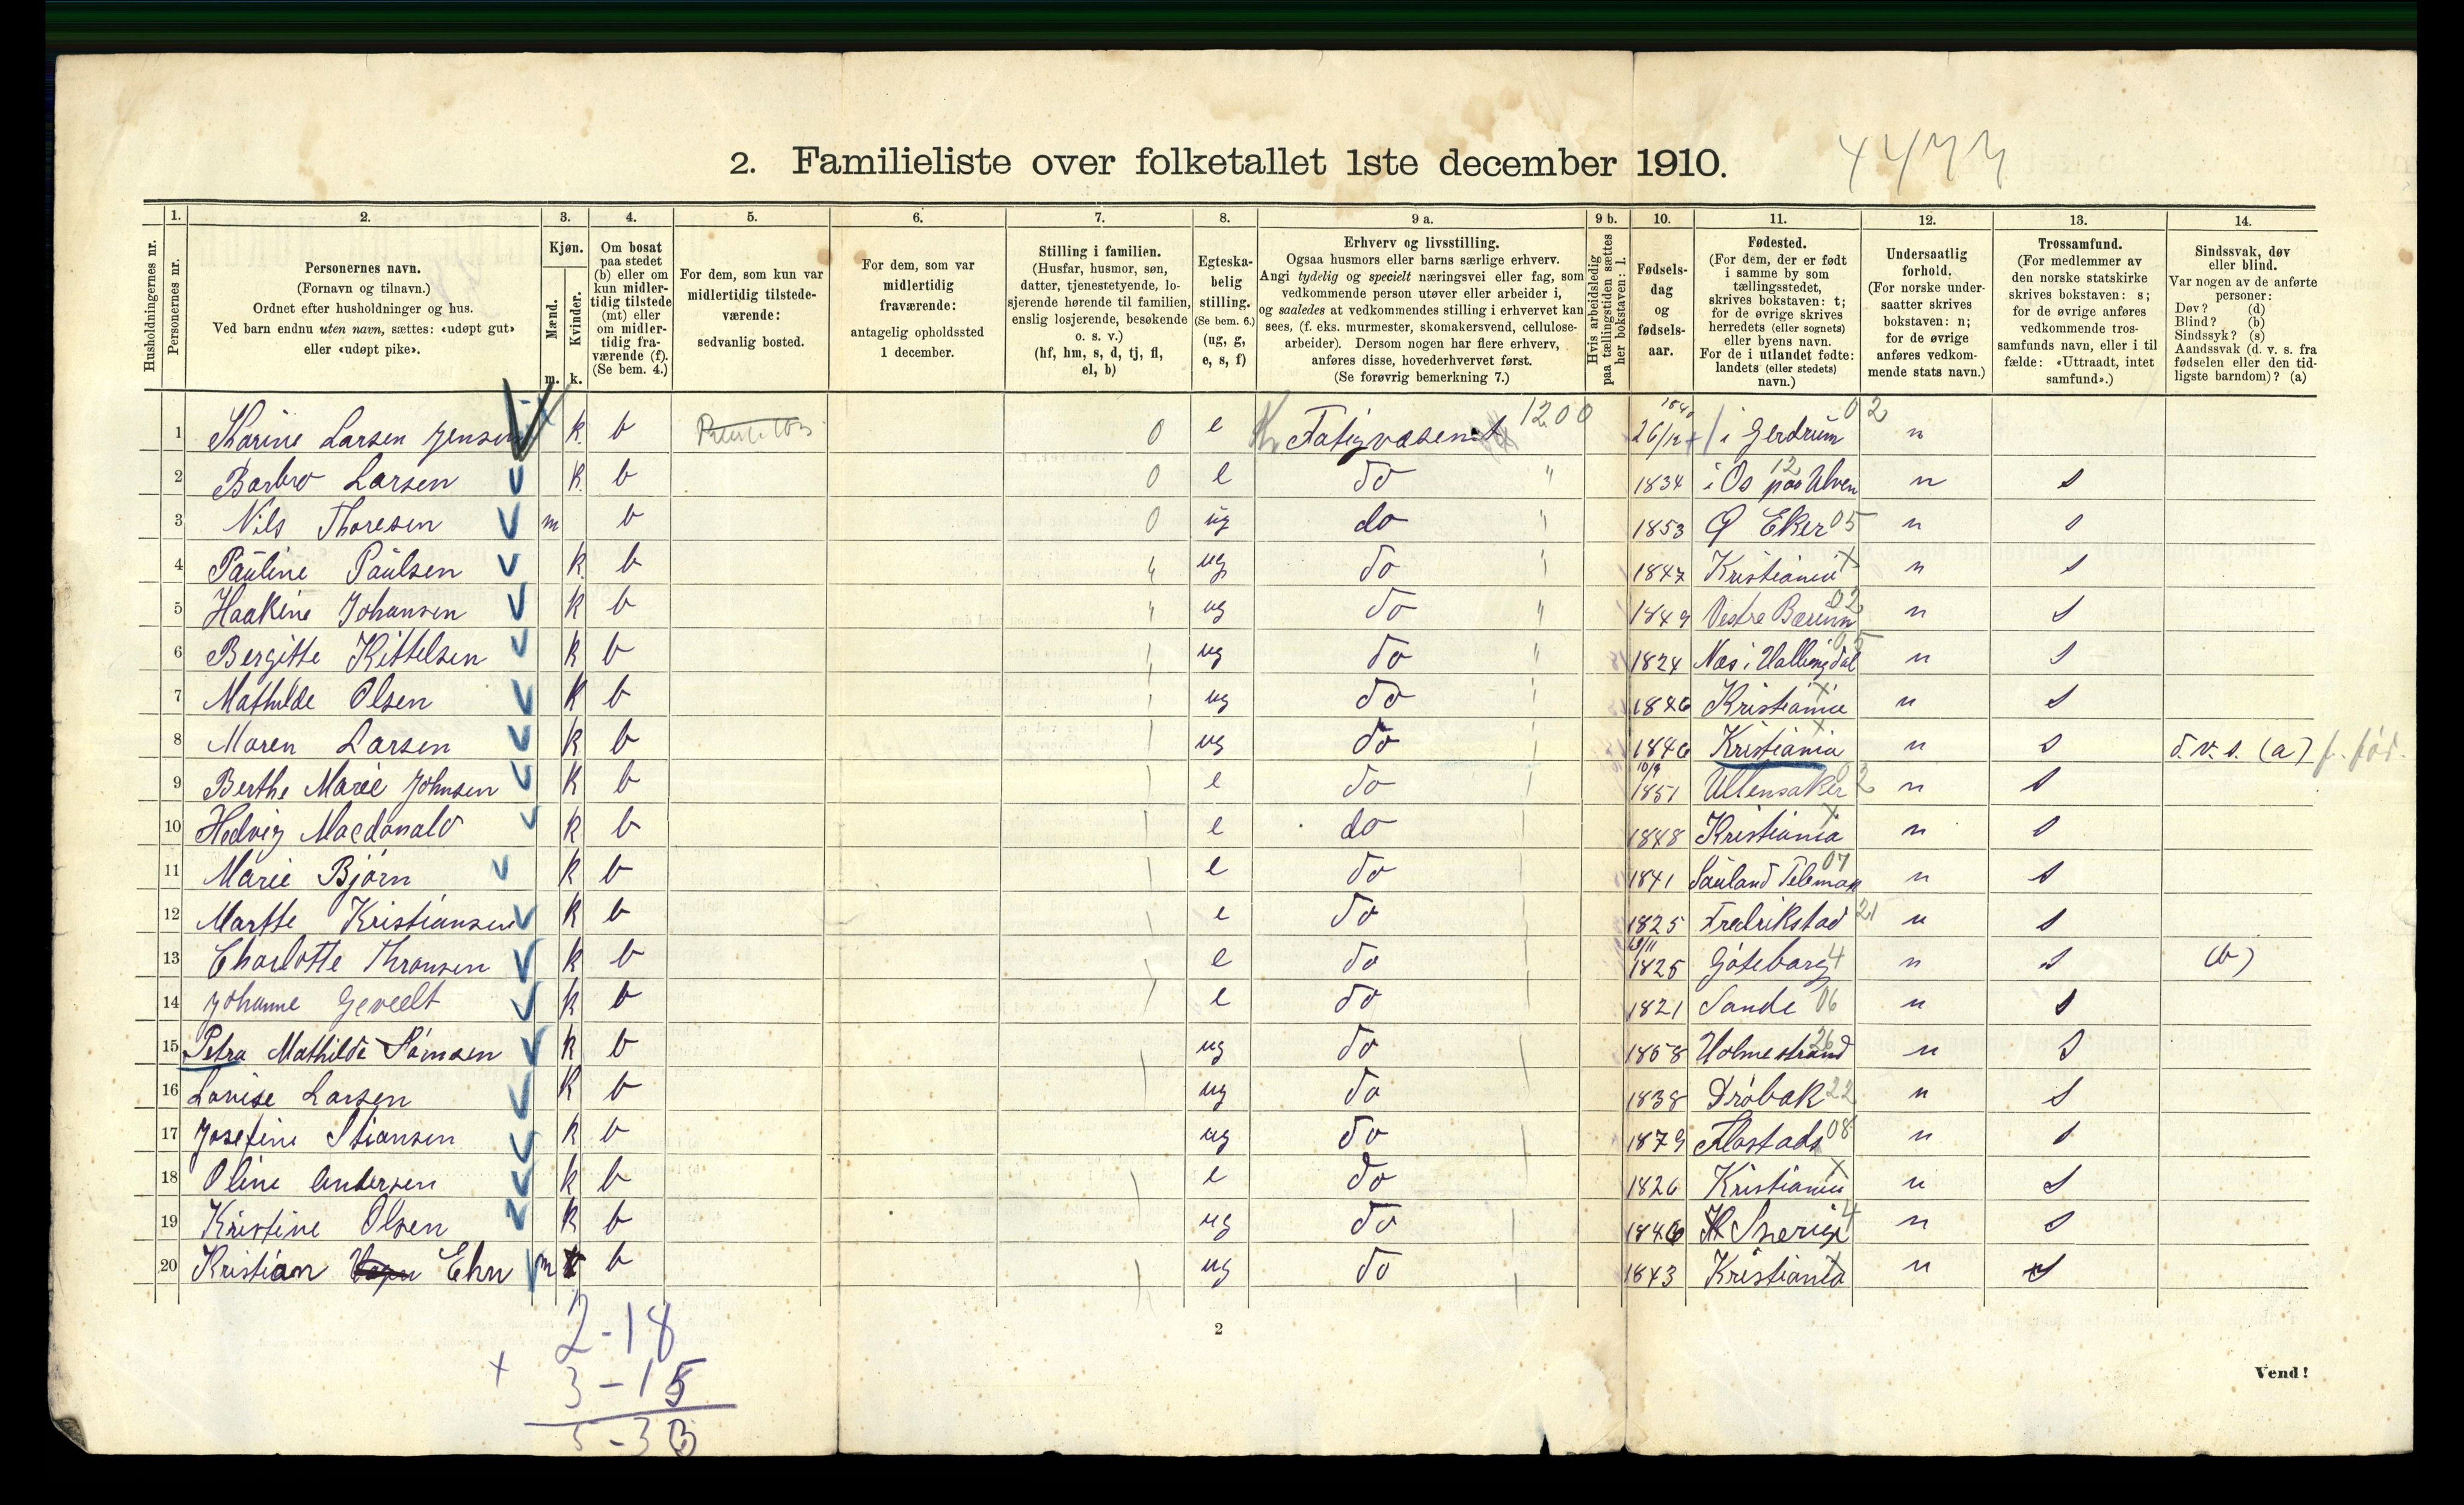 2. Familieliste over folketallet 1ste december 1910.
4477
1. 2. 3. 4. 5. 6. 7. 8. 9 a. 9 b. 10. 11. 12. 13. 14.
Husholdningernes nr.
Personernes nr.
Personernes navn.
(Fornavn og tilnavn.)
Ordnet efter husholdninger og hus.
Ved barn endnu uten navn, sættes: «udøpt gut»
eller «udøpt pike».
Kjøn.
Mænd.
m.
Kvinder.
k.
Om bosat
paa stedet
(b) eller om
kun midler-
tidig tilstede
(mt) eller
om midler-
tidig fra-
værende (f).
(Se bem. 4.)
For dem, som kun var
midlertidig tilstede-
værende:
sedvanlig bosted.
For dem, som var
midlertidig
fraværende:
antagelig opholdssted
1 december.
Stilling i familien.
(Husfar, husmor, søn,
datter, tjenestetyende, lo-
sjerende hørende til familien,
enslig losjerende, besøkende
o. s. v.)
(hf, hm, s, d, tj, fl,
el, b)
Egteska-
belig
stilling.
(Se bem. 6.)
(ug, g,
e, s, f)
Erhverv og livsstilling.
Ogsaa husmors eller barns særlige erhverv.
Angi tydelig og specielt næringsvei eller fag, som
vedkommende person utøver eller arbeider i,
og saaledes at vedkommendes stilling i erhvervet kan
sees, (f. eks. murmester, skomakersvend, cellulose-
arbeider). Dersom nogen har flere erhverv,
anføres disse, hovederhvervet først.
(Se forøvrig bemerkning 7.)
Hvis arbeidsledig
paa tællingstiden sættes
her bokstaven: l.
Fødsels-
dag
og
fødsels-
aar.
Fødested.
(For dem, der er født
i samme by som
tællingsstedet,
skrives bokstaven: t;
for de øvrige skrives
herredets (eller sognets)
eller byens navn.
For de i utlandet fødte:
landets (eller stedets)
navn.)
Undersaatlig
forhold.
(For norske under-
saatter skrives
bokstaven: n;
for de øvrige
anføres vedkom-
mende stats navn.)
Trossamfund.
(For medlemmer av
den norske statskirke
skrives bokstaven: s;
for de øvrige anføres
vedkommende tros-
samfunds navn, eller i til
fælde: «Uttraadt, intet
samfund».)
Sindssvak, døv
eller blind.
Var nogen av de anførte
personer:
Døv? (d)
Blind? (b)
Sindssyk? (s)
Aandssvak (d. v. s. fra
fødselen eller den tid-
ligste barndom)? (a)
1 Karine Larsen Jensen k. b 0 e Fatigvæsenet 1200 1840 26/12 i Gerdrum 02 n
2 Barbro Larsen k. b 0 e do " 1834 i Os paa Ulven 12 n s
3 Nils Thoresen m b 0 ug do " 1853 Ø Eker 05 n s
4 Pauline Paulsen k. b " ug do " 1847 Kristiania x n s
5 Haakine Johansen k b " ug do " 1849 Vestre Bærum 02 n s
6 Bergitte Kittelsen k b ug do " 1824 Næs i Hallingdal 05 n s
7 Mathilde Olsen k b ug do 1846 Kristiania x n s
8 Maren Larsen k b ug do 1846 Kristiania x n s d.v.s. (a) f. fød.
9 Berthe Marie Johnsen k b e do 10/9 1851 Ullensaker 02 n s
10 Hedvig Macdonald k b e do 1848 Kristiania x n s
11 Marie Bjørn k b e do 1841 Sauland Telemark 07 n s
12 Marthe Kristiansen k b e do 1825 Fredrikstad 21 n s
13 Charlotte Thronsen k b e do 1825 Gøteborg 4 n s (b)
14 Johanne Geveelt k b e do 1821 Sande 06 n s
15 Petra Mathilde Sømsen k b ug do 1858 Holmestrand 26 n s
16 Lovise Larsen k b ug do 1838 Drøbak 22 n s
17 Josefine Stiansen k b ug do 1879 Flostads 08 n s
18 Oline Andersen k b e do 1826 Kristiania x n s
19 Kristine Olsen k b ug do 1846 Sverige 4 n s
20 Kristian Ehn m b ug do 1843 Kristiania x n s
2-18
+ 3-15
5-33
2
Vend!